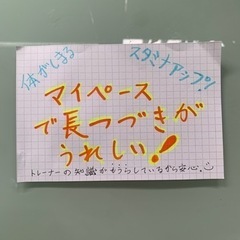 体がしまる
スタミナアップ!
マイペース
で長つづきが
うれしい!
トレーナーの知識がもうらしているから安心。